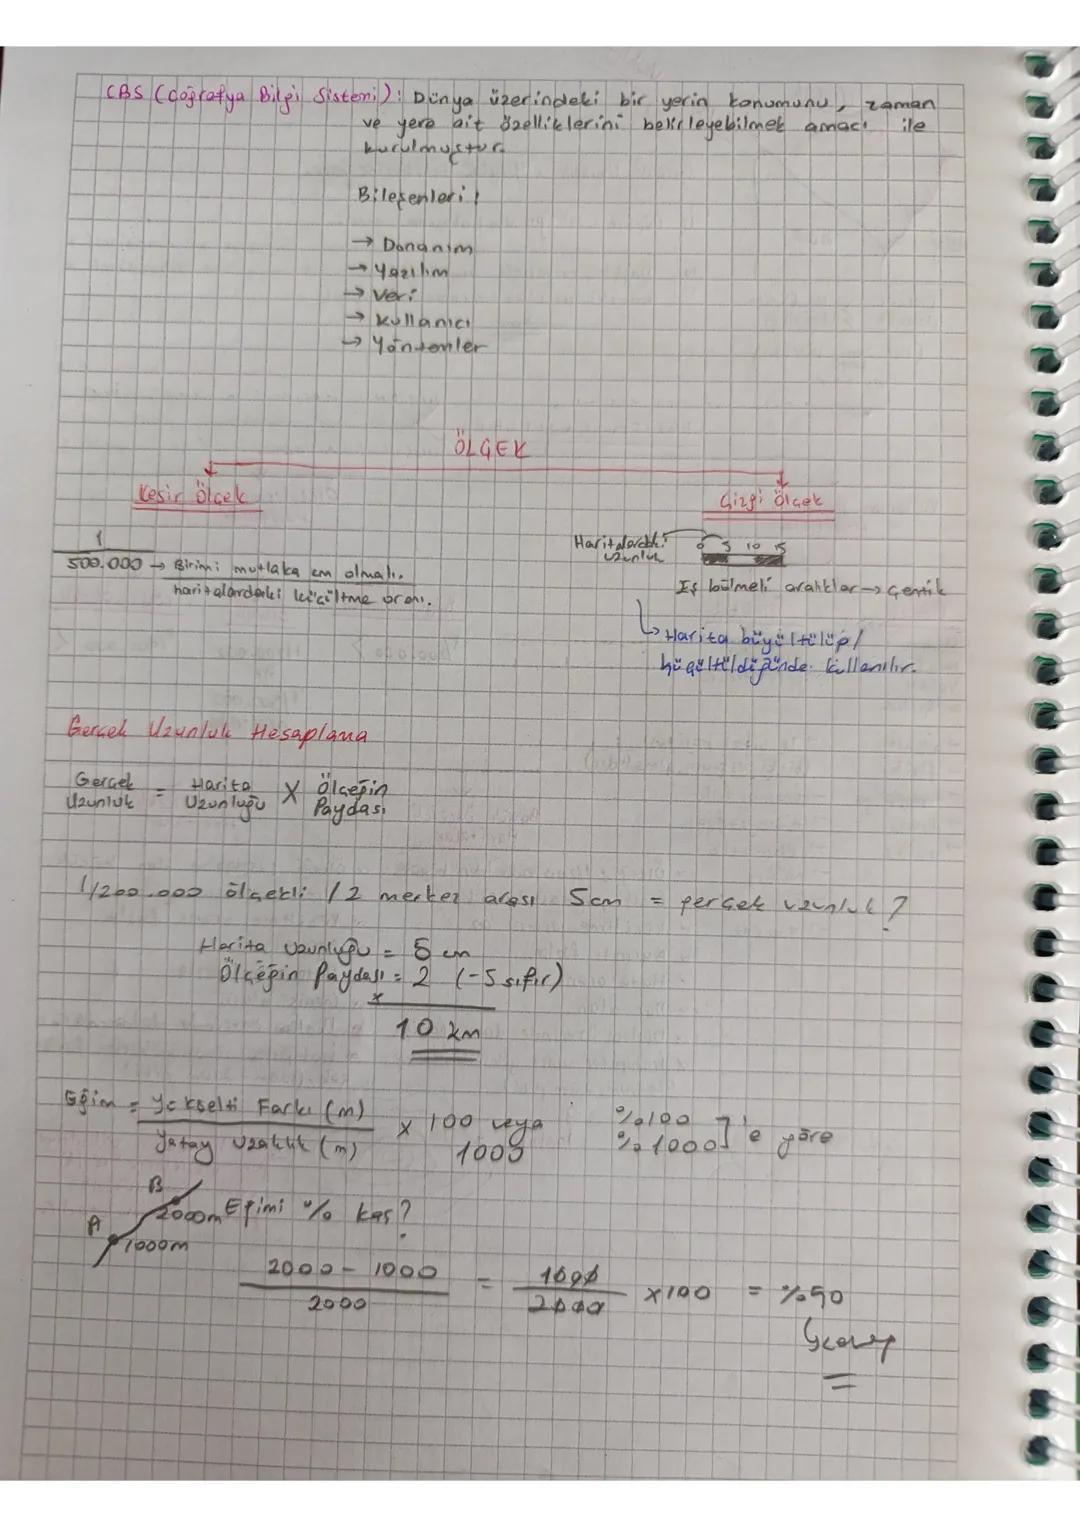 CBS (Coğrafya Bilgi Sistemi): Dünya üzerindeki bir yerin konumunu, zaman
ve yere ait özelliklerini belirleyebilmek amacı ile
kurulmuştur.
Bileşenleri:
→ Donanım
→ Yazılım
→ Veri
→ Kullanıcı
→ Yöntemler
ÖLÇEK
Kesir Ölçek
Çizgi Ölçek
1
500.000 → Birimi mutlaka cm olmalı.
haritalardaki küçültme oranı.
Haritalardaki
uzunluk
0 5 10 15
Eş bölmeli aralıklar → Çentik
↳ Harita büyültülüp/
küçültüldüğünde kullanılır.
Gerçek Uzunluk Hesaplama
Gerçek Uzunluk = Harita Uzunluğu X Ölçeğin Paydası
1/200.000 ölçekli / 2 merkez arası 5cm = gerçek uzunluk?
Harita uzunluğu = 5 cm
Ölçeğin Paydası = 2 (-5 sıfır)
x
10 km
Eğim = Yükselti Farkı (m)
Yatay uzaklık (m)
x 100 veya
1000
%100
%1000 ]'e göre
B
2000m
A
1000m
Eğimi % kaç?
2000 - 1000
2000
=
1000
2000
x100 = %50
↳cevap